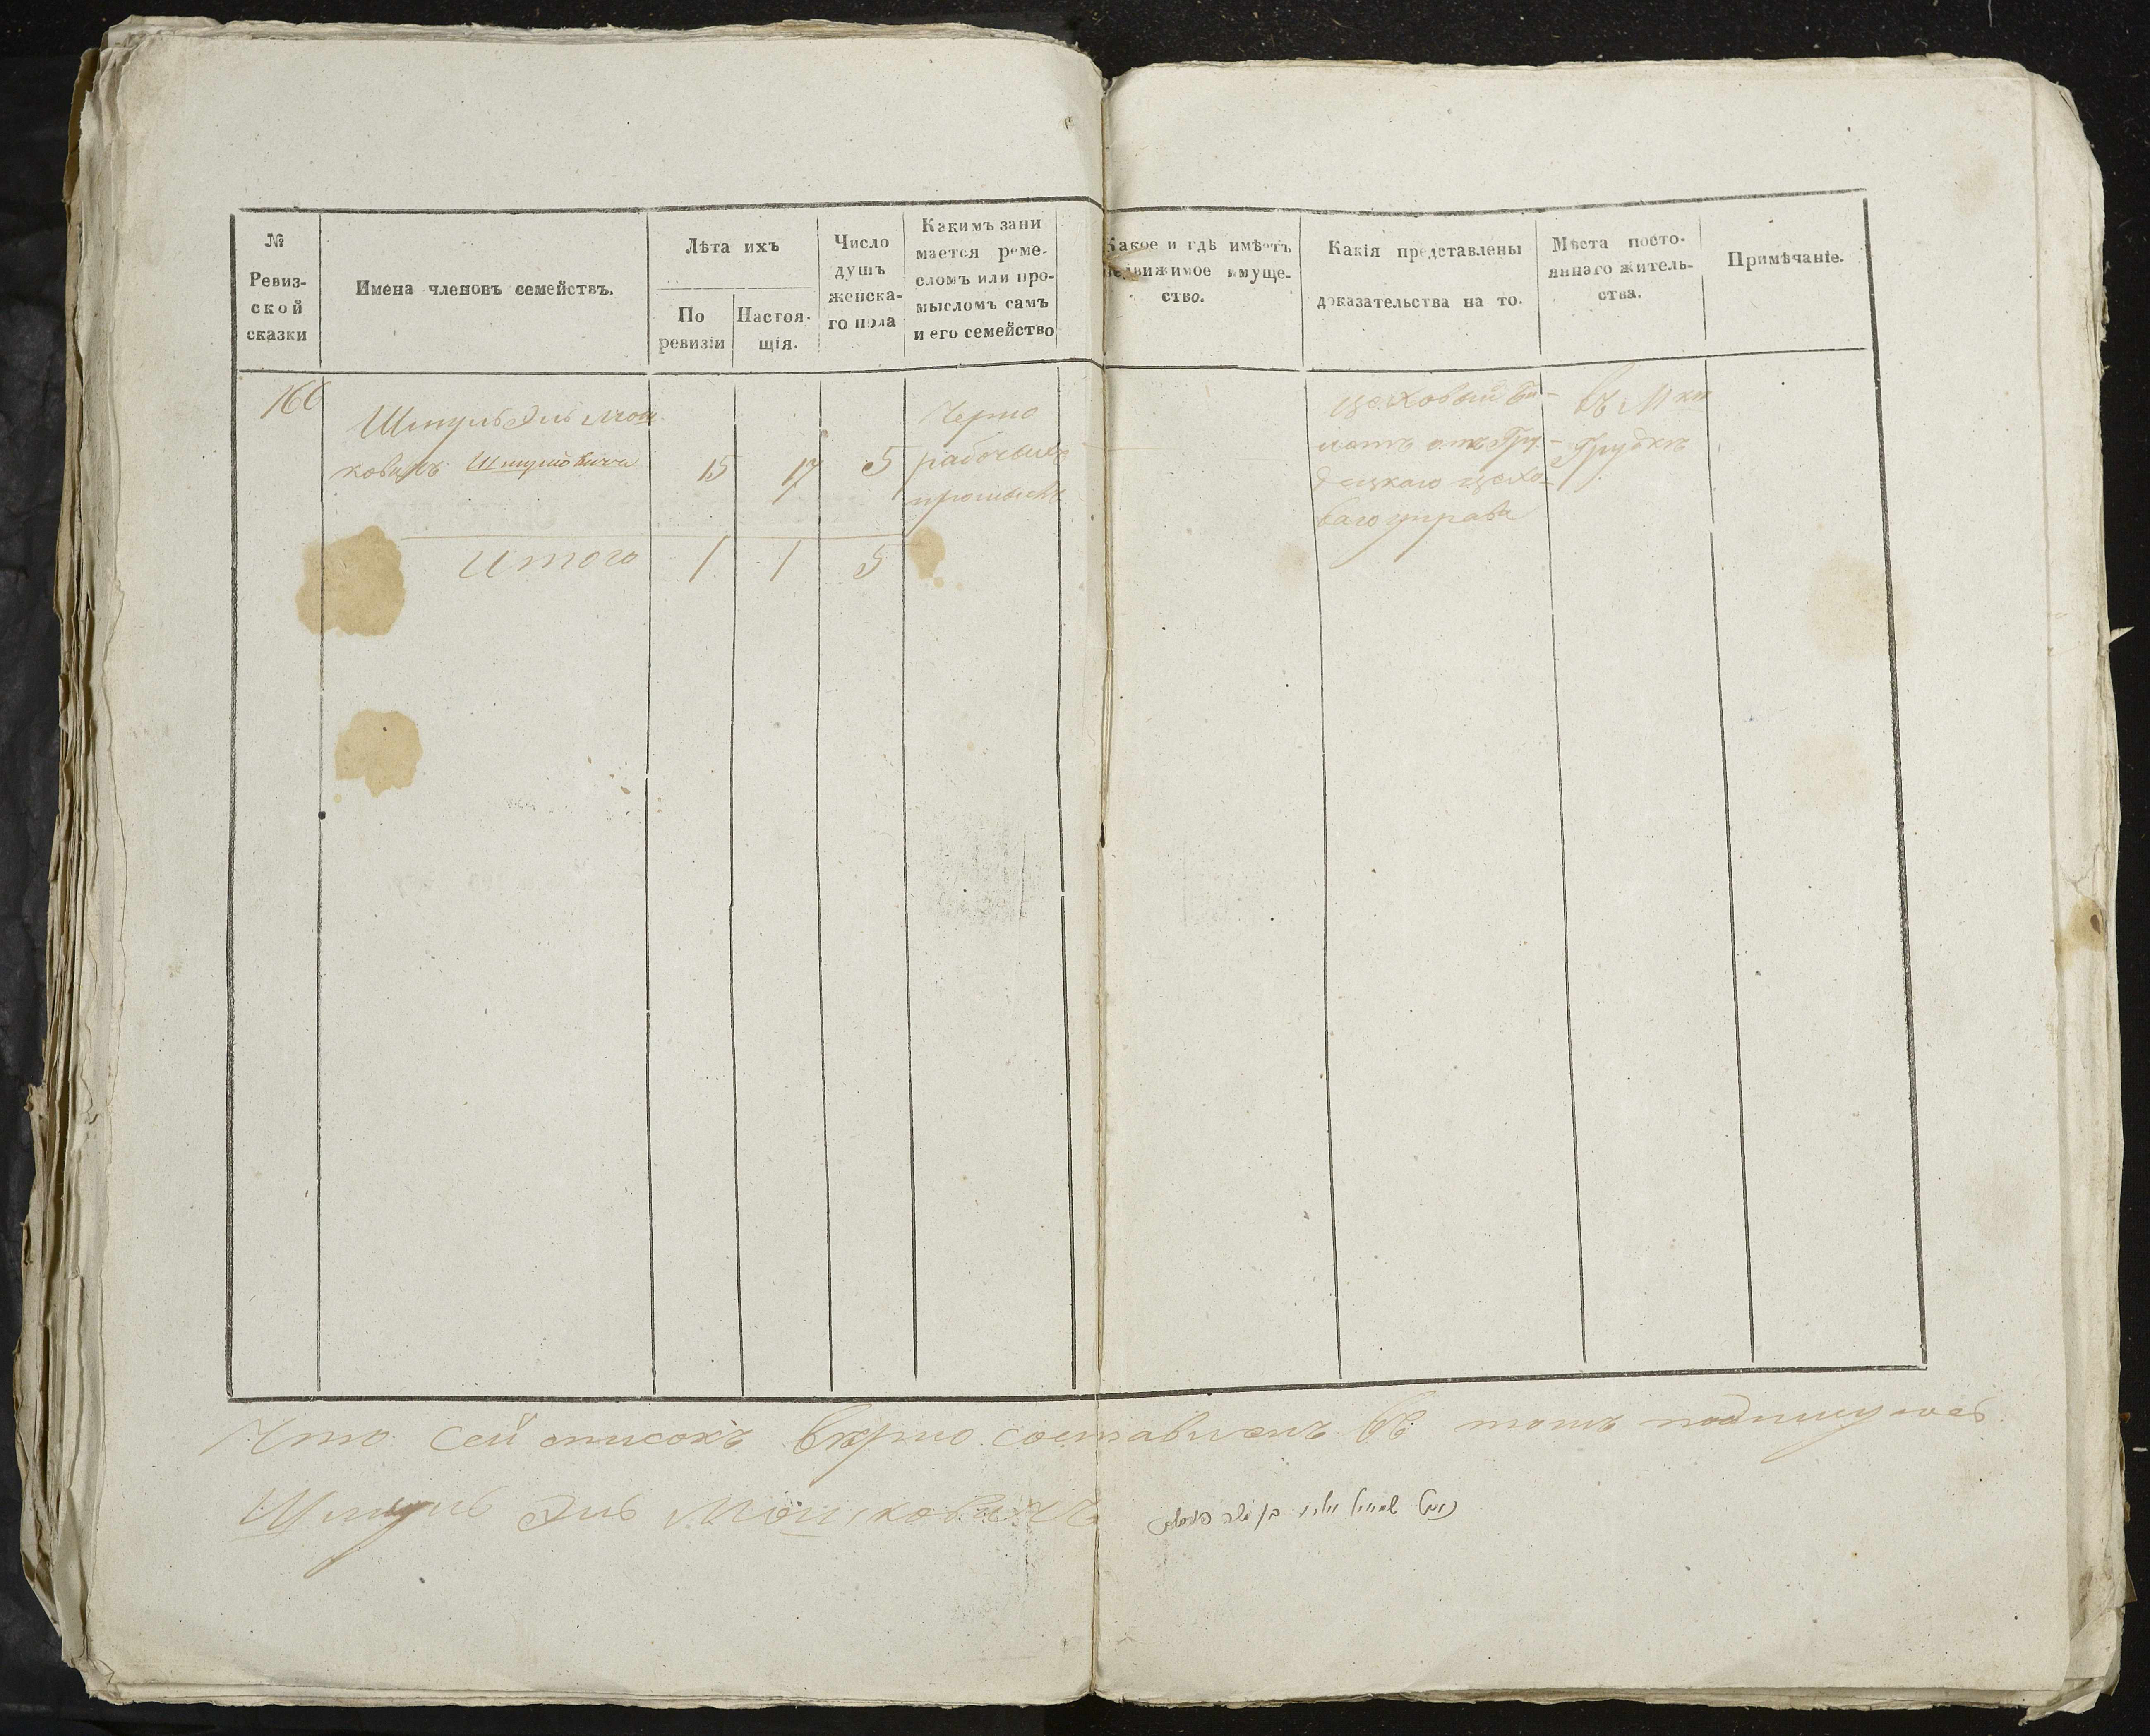 №
Ревиз-
ской
сказки
Имена членовъ семействъ.
Лѣта ихъ
По
ревизіи
Настоя-
щія.
Число
душъ
женска-
го пола
Какимъ зани
мается реме-
сломъ или про-
мысломъ самъ
и его семейство
Какое и гдѣ имѣетъ
недвижимое имуще-
ство.
Какія представлены
доказательства на то.
Мѣста посто-
яннаго житель-
ства.
Примѣчаніе.
166
Шмуль Эль Мош
ковичъ Шмулёвичъ
15 17 5
Черно
рабочымъ
промысл
цеховый би-
летъ отъ Гру-
децкаго цехо-
ваго управа
въ М-ки
Грудкъ
Итого 1 1 5
Что сей списокъ вѣрно составленъ въ томъ подпишуюсь
Шмуль Эль Мошковичъ
שמואל בן משה